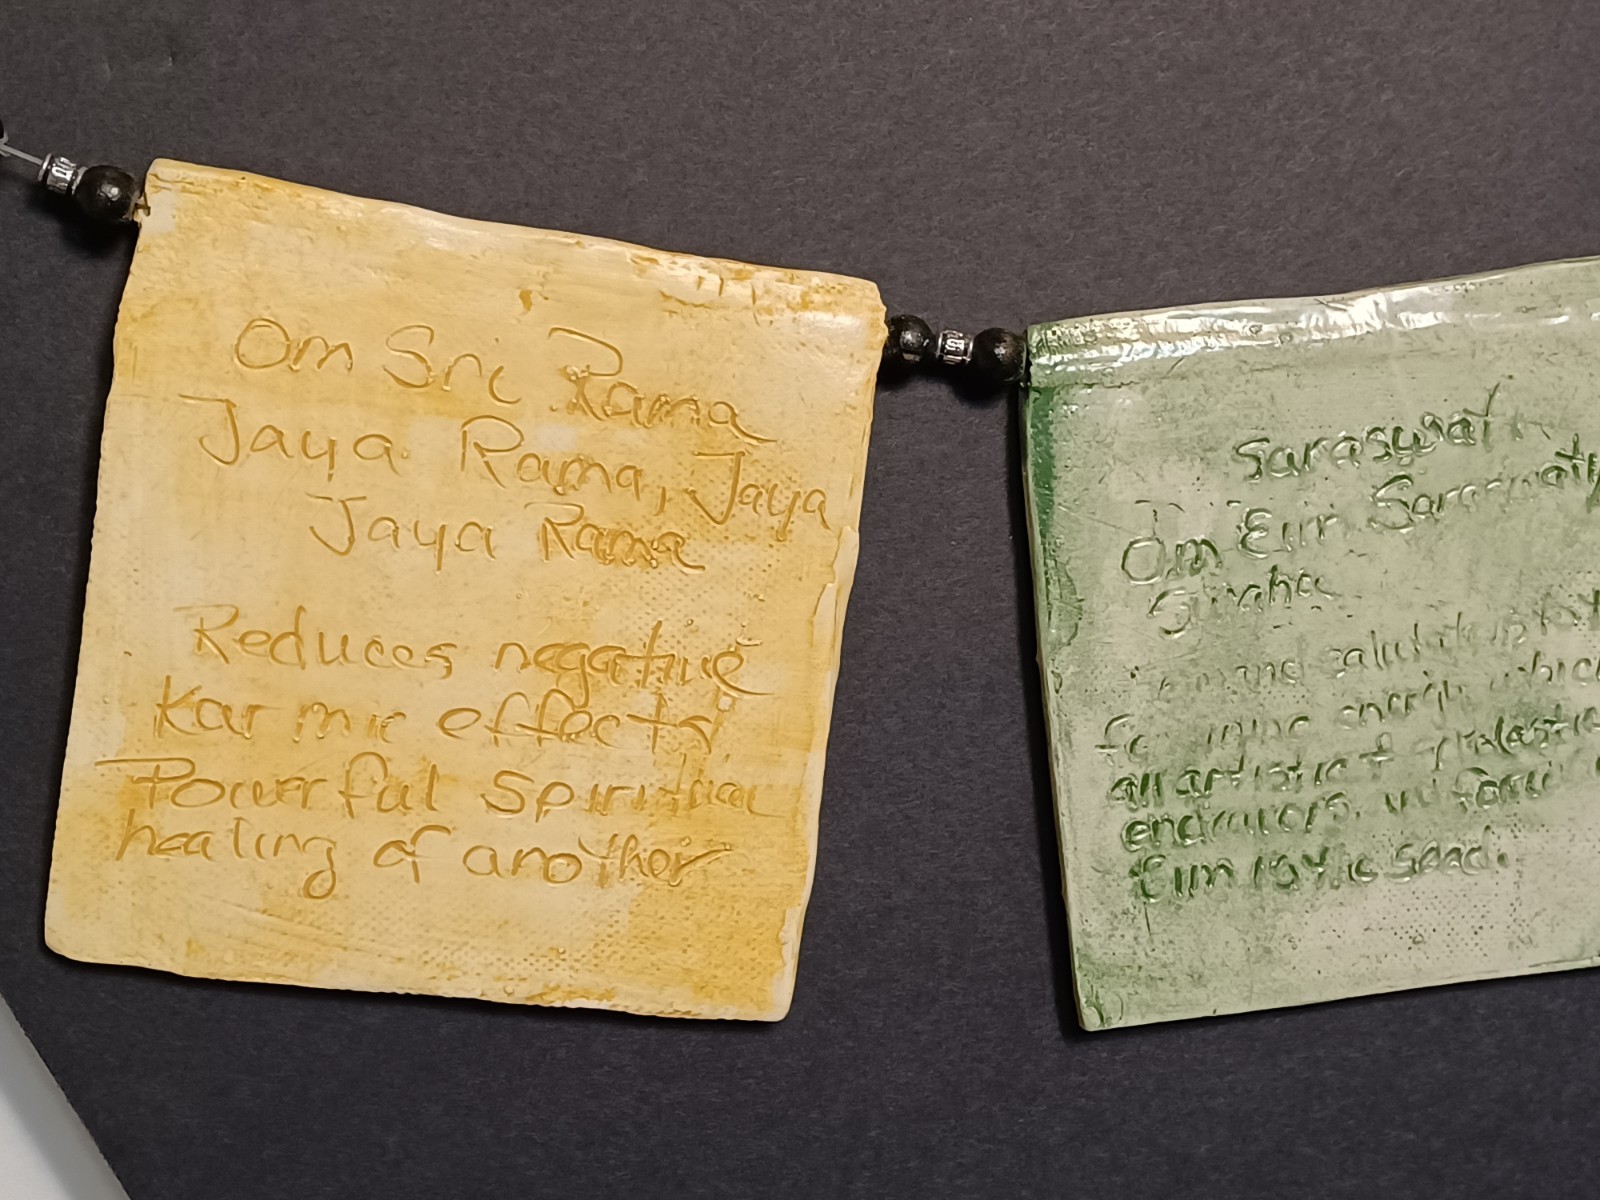 Om Sri Rama
Jaya Rama, Jaya
Jaya Rama
Reduces negative
Karmic effects
Powerful Spiritual
healing of another
Saraswati
Om Eim Saraswaty
Swaha
and salutations to
energy which
all artistic
endeavors.
Eim is the seed.